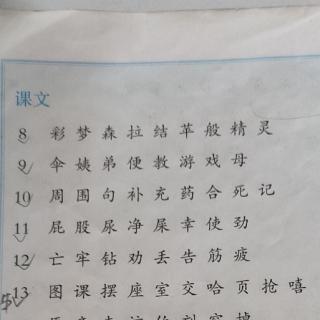 课文
8 彩 梦 森 拉 结 苹 般 精 灵
9 伞 姨 弟 便 教 游 戏 母
10 周 围 句 补 充 药 合 死 记
11 屁 股 尿 净 屎 幸 使 劲
12 亡 牢 钻 劝 丢 告 筋 疲
13 图 课 摆 座 室 交 哈 页 抢 嘻